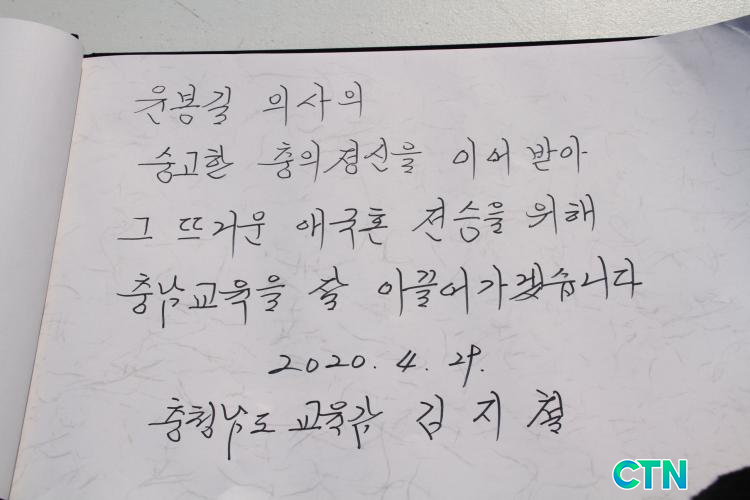 윤봉길 의사의
숭고한 충의정신을 이어받아
그 뜨거운 애국혼 전승을 위해
충남교육을 잘 이끌어가겠습니다
2020. 4. 29.
충청남도 교육감 김지철
CTN